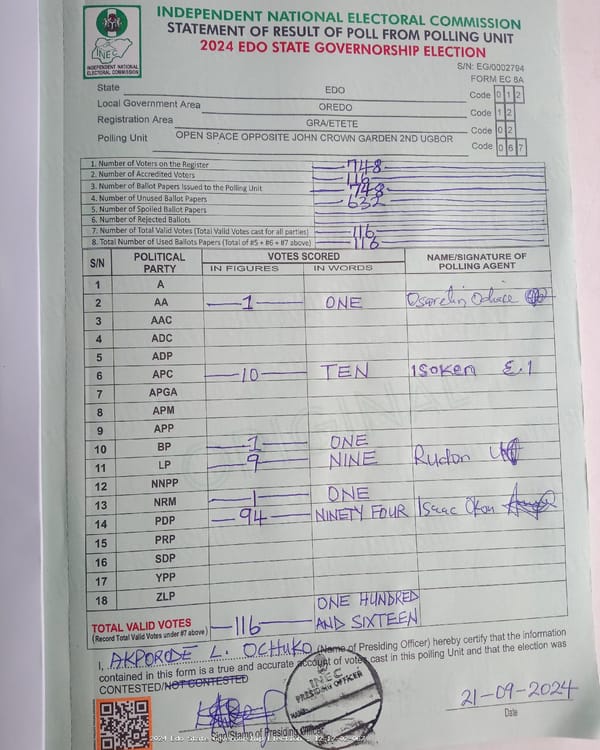 INDEPENDENT NATIONAL ELECTORAL COMMISSION
STATEMENT OF RESULT OF POLL FROM POLLING UNIT
2024 EDO STATE GOVERNORSHIP ELECTION
INEC
INDEPENDENT NATIONAL
ELECTORAL COMMISSION
S/N: EG/0002794
FORM EC 8A
State EDO Code 0 1 2
Local Government Area OREDO Code 1 2
Registration Area GRA/ETETE Code 0 2
Polling Unit OPEN SPACE OPPOSITE JOHN CROWN GARDEN 2ND UGBOR Code 0 6 7
1. Number of Voters on the Register 748
2. Number of Accredited Voters 116
3. Number of Ballot Papers Issued to the Polling Unit 748
4. Number of Unused Ballot Papers 632
5. Number of Spoiled Ballot Papers
6. Number of Rejected Ballots
7. Number of Total Valid Votes (Total Valid Votes cast for all parties) 116
8. Total Number of Used Ballots Papers (Total of #5 + #6 + #7 above) 116
S/N POLITICAL PARTY VOTES SCORED NAME/SIGNATURE OF POLLING AGENT
IN FIGURES IN WORDS
1 A
2 AA 1 ONE
3 AAC
4 ADC
5 ADP
6 APC 10 TEN ISOKEN E.I
7 APGA
8 APM
9 APP
10 BP 1 ONE
11 LP 9 NINE
12 NNPP
13 NRM 1 ONE
14 PDP 94 NINETY FOUR Isaac Okon
15 PRP
16 SDP
17 YPP
18 ZLP
TOTAL VALID VOTES 116 ONE HUNDRED AND SIXTEEN
(Record Total Valid Votes under #7 above)
I, AKPORODE L. OCHUKO (Name of Presiding Officer) hereby certify that the information
contained in this form is a true and accurate account of votes cast in this polling Unit and that the election was
CONTESTED/NOT CONTESTED
INEC
PRESIDING OFFICER
21-09-2024
Sign/Stamp of Presiding Officer
Date
ORIGINAL